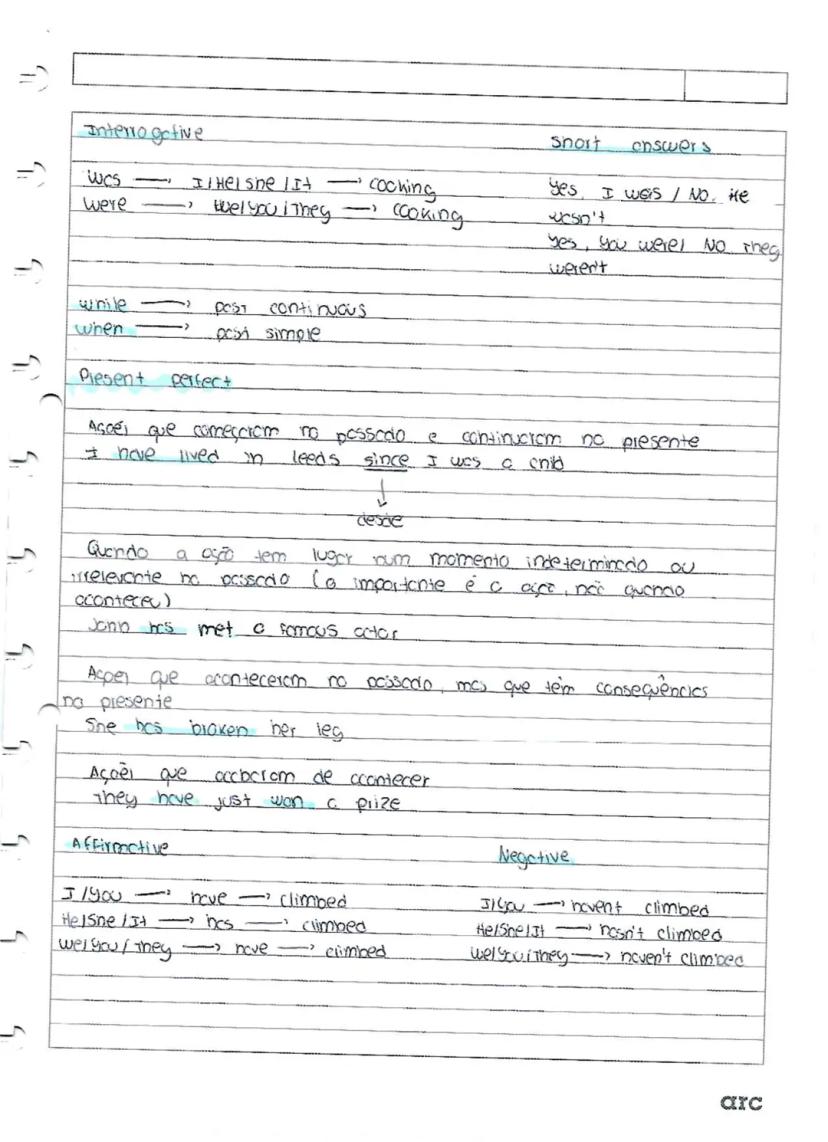 Interrogative
Short answers
Was → I/He/She/It → cooking
Yes, I was / No, He
were → We/you/They → cooking
wasn't
Yes, you were/ No they
weren't
while → past continuous
when → past simple
Present perfect
Ações que começaram no passado e continuaram no presente
I have lived in leeds since I was a child
desde
Quando a ação tem lugar num momento indeterminado ou
irrelevante no passado (o importante é a ação, não quando
aconteceu)
John has met a famous actor
Ações que aconteceram no passado, mas que têm consequências
no presente
She has broken her leg
Ações que acabaram de acontecer
They have just won a prize
Affirmative
Negative
I/you → have → climbed
I/you → havent climbed
He/She/It → has → climbed
He/She/It → hasn't climbed
We/you/They → have → climbed
We/you/They → haven't climbed
arc